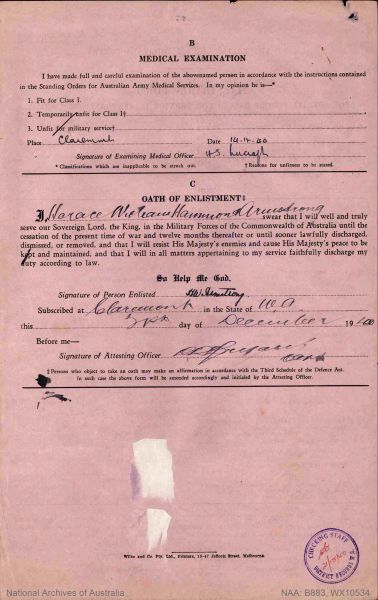 B
MEDICAL EXAMINATION
I have made full and careful examination of the abovenamed person in accordance with the instructions contained
in the Standing Orders for Australian Army Medical Services. In my opinion he is—*
1. Fit for Class I.
2. Temporarily unfit for Class I†
3. Unfit for military service†
Place Claremont Date 14.12.40
Signature of Examining Medical Officer H.S. Lucraft
* Classifications which are inapplicable to be struck out. † Reasons for unfitness to be stated.
C
OATH OF ENLISTMENT‡
I, Horace William Hammond Armstrong swear that I will well and truly
serve our Sovereign Lord, the King, in the Military Forces of the Commonwealth of Australia until the
cessation of the present time of war and twelve months thereafter or until sooner lawfully discharged,
dismissed, or removed, and that I will resist His Majesty's enemies and cause His Majesty's peace to be
kept and maintained, and that I will in all matters appertaining to my service faithfully discharge my
duty according to law.
So Help Me God.
Signature of Person Enlisted HW Armstrong
Subscribed at Claremont in the State of W.A
this day of December 1940
Before me—
Signature of Attesting Officer
‡ Persons who object to take an oath may make an affirmation in accordance with the Third Schedule of the Defence Act.
In such case the above form will be amended accordingly and initialed by the Attesting Officer.
Wilke and Co. Pty. Ltd., Printers, 19-47 Jeffcott Street, Melbourne.
CHECKING STAFF
DISTRICT RECORDS
National Archives of Australia
NAA: B883, WX10534